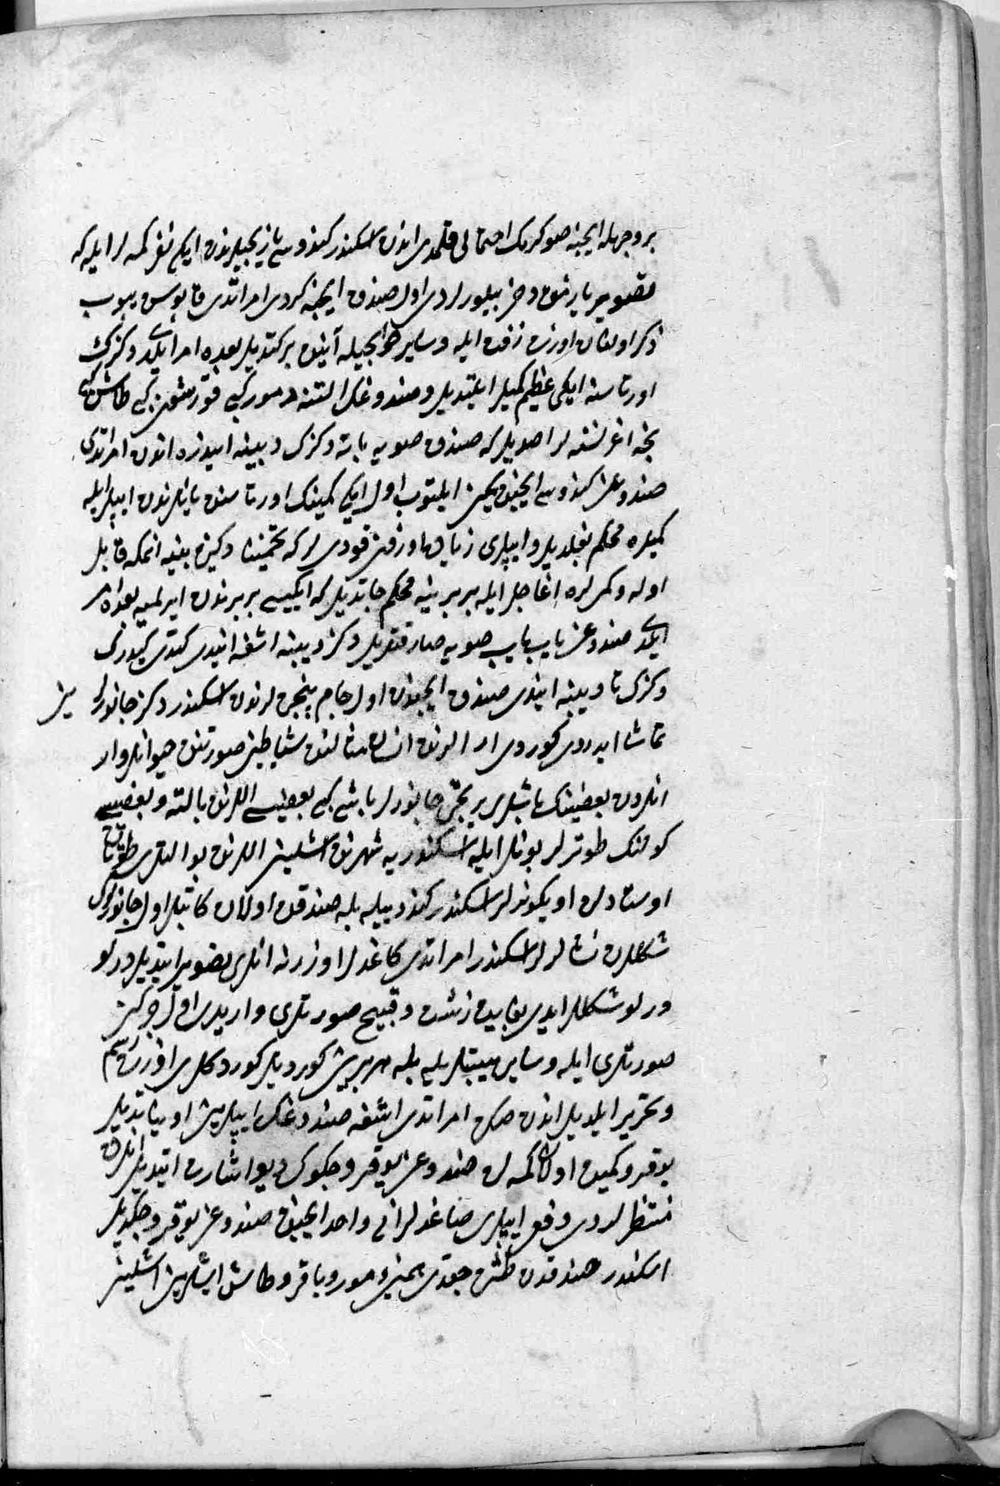 بر وجهله ایچنه صو کرمک احتمالی قلمدی اندن اسکندر کندو سی یازیجیلرندن ایکی نفر کمسه لر ایله که
تصویر یازمق دخی بیلورلردی اول صندوق ایچنه کردی امر اتدی قاپوسن یپوب
ذکر اولنان اوزره زفت ایله و سایر حوایجیله آنی برکتدیلر بعده امر ایلدی دکزک
اورتاسنه ایکی عظیم کمیلر ایلتدیلر و صندوغک التنه دمور کبی قورشون کبی طاش کبی
نیجه اغر نسنه لر اصدیلر که صندوق صویه باته دکزک دیبنه اینه اندن امر اتدی
صندوغی کندوسی ایچنده ایکن ایلتوب اول ایکی کمینک اورتاسندن یانلرندن ایپلر ایله
کمیلره محکم بغلدیلر و ایپلری زیاده اوزن قودیلر که تخمینا دکزک دیبنه انمکه قابل
اوله و کمیلری اغاجلر ایله بربرینه محکم چاتدیلر که ایکیسی بربرندن ایرلمیه بعده امر
ایلدی صندوغی یاب یاب صویه صارقتدیلر دکز دیبنه اشغه ایندی کتدی کیدرک
دکزک تا دیبنه ایندی صندوق ایچندن اول جام پنجره لرندن اسکندر دکز جانورلرینی
تماشا ایدردی کوردی ار الرنده انسان مثالنده شیاطین صورتنده حیوانلر وار
انلردن بعضینک باشلری یرتیجی جانورلر باشی کبی بعضیسی اللرنده بالته و بعضیسی
کولنک طوترلر بونلر ایله اسکندریه شهرنده ایشلین اللرنده بو التلری طوتان
اوستادلره اویکونرلر اسکندر کندو بیله بله صندوقده اولان کاتبلر اول جانورلرک
شکللرین نشانلرلر اسکندر امر اتدی کاغدلر اوزرنه انلری تصویر ایتدیلر درلو
درلو شکللر ایدی بغایت زشت و قبیح صورتلری واریدی اول جرکین
صورتلری ایله و سایر هیبتلریله بله هر برین کوردیلر کوردکلری اوزره رسم
و تحریر ایلدیلر اندن صکره امر اتدی اشغه صندوغک ایپلرین اویناتدیلر
یوقرو کمیده اولان کمسه لره صندوغی یوقرو چکوک دیو اشارت اتدیلر انلر دخی
منتظرلردی فی الحال ایپلری صاغدلر انی واحد ایچنده صندوغی یوقرو چکدیلر
اسکندر صندوقدن طشره چقدی همین دمور و باقر و طاش ایشلرین اشلین